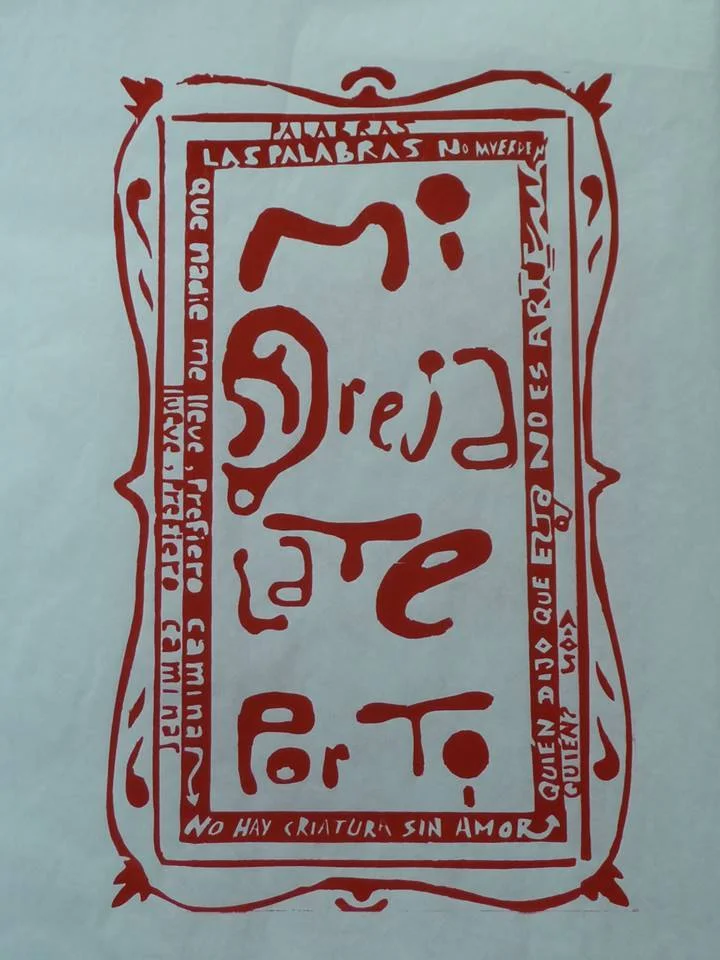 LAS PALABRAS NO MUERDEN
Mi
Oreja
LaTe
Por Ti
que nadie me lleve, Prefiero caminar
lleve, Prefiero caminar
NO HAY CRIATURA SIN AMOR
QUIEN DIJO QUE ESTO NO ES ARTE
QUIEN?